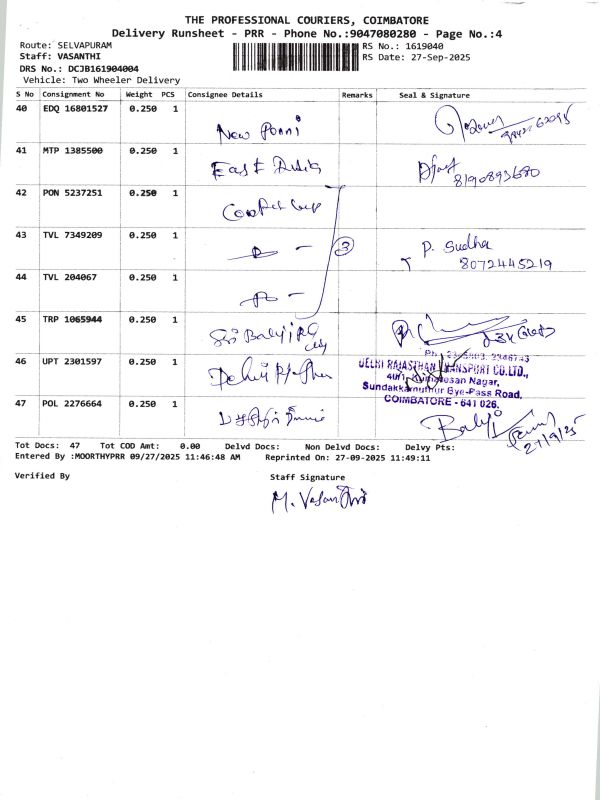 THE PROFESSIONAL COURIERS, COIMBATORE
Delivery Runsheet - PRR - Phone No.:9047080280 - Page No.:4
Route: SELVAPURAM
RS No.: 1619040
Staff: VASANTHI
RS Date: 27-Sep-2025
DRS No.: DCJB161904004
Vehicle: Two Wheeler Delivery
S No Consignment No Weight PCS Consignee Details Remarks Seal & Signature
40 EDQ 16801527 0.250 1
New Ponni
41 MTP 1385500 0.250 1
East India
8190893680
42 PON 5237251 0.250 1
3
43 TVL 7349209 0.250 1
P. Sudha
8072445219
44 TVL 204067 0.250 1
45 TRP 1065944 0.250 1
Sri Balaji
46 UPT 2301597 0.250 1
DELHI RAJASTHAN TRANSPORT CO.LTD.,
Sundakkamuthur Bye-Pass Road,
COIMBATORE - 641 026.
47 POL 2276664 0.250 1
Balaji
27/9/25
Tot Docs: 47 Tot COD Amt: 0.00 Delvd Docs: Non Delvd Docs: Delvy Pts:
Entered By :MOORTHYPRR 09/27/2025 11:46:48 AM Reprinted On: 27-09-2025 11:49:11
Verified By
Staff Signature
M. Vasanthi